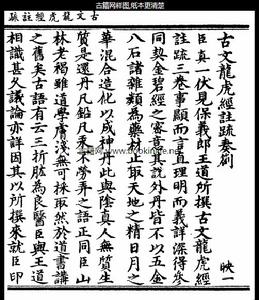 古籍网样图,纸本更清楚
古文龍虎經註疏
古文龍虎經註疏奏劄
映一
臣真一伏見保義郎王道所撰古文龍虎經
註疏三卷事顯而言直理明而義詳深得參
同契金碧經之奧意其說外丹皆不以五金
八石諸雜類為藥材止取天地之精日月之
華混合造化以成神丹此與陰真人無質生
質是還丹凡鉛凡汞不勞弄之語正同臣山
林老褐雖道學膚淺無可採取然於道書講
之舊矣古語有云三折肱為良醫臣與王道
相識甚久議論亦詳因其以所撰來就臣印